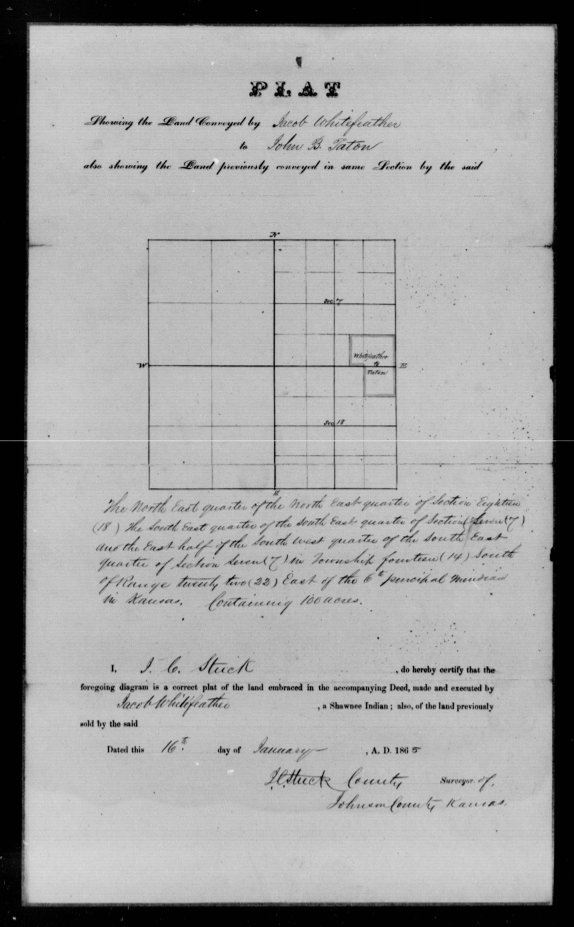 PLAT
Showing the Land Conveyed by Jacob Whitefeather
to John B. Taton
also showing the Land previously conveyed in same Section by the said
N
Sec 7
Whitefeather
to
Taton
W
E
Sec 18
S
The North East quarter of the North East quarter of Section Eighteen
(18) The South East quarter of the South East quarter of Section Seven (7)
and the East half of the South West quarter of the South East
quarter of Section Seven (7) in Township fourteen (14) South
of Range twenty two (22) East of the 6th principal Meridian
in Kansas. Containing 100 acres.
I, J. C. Stuck , do hereby certify that the
foregoing diagram is a correct plat of the land embraced in the accompanying Deed, made and executed by
Jacob Whitefeather , a Shawnee Indian; also, of the land previously
sold by the said
Dated this 16th day of January , A. D. 1865
J C Stuck County Surveyor of
Johnson County Kansas.